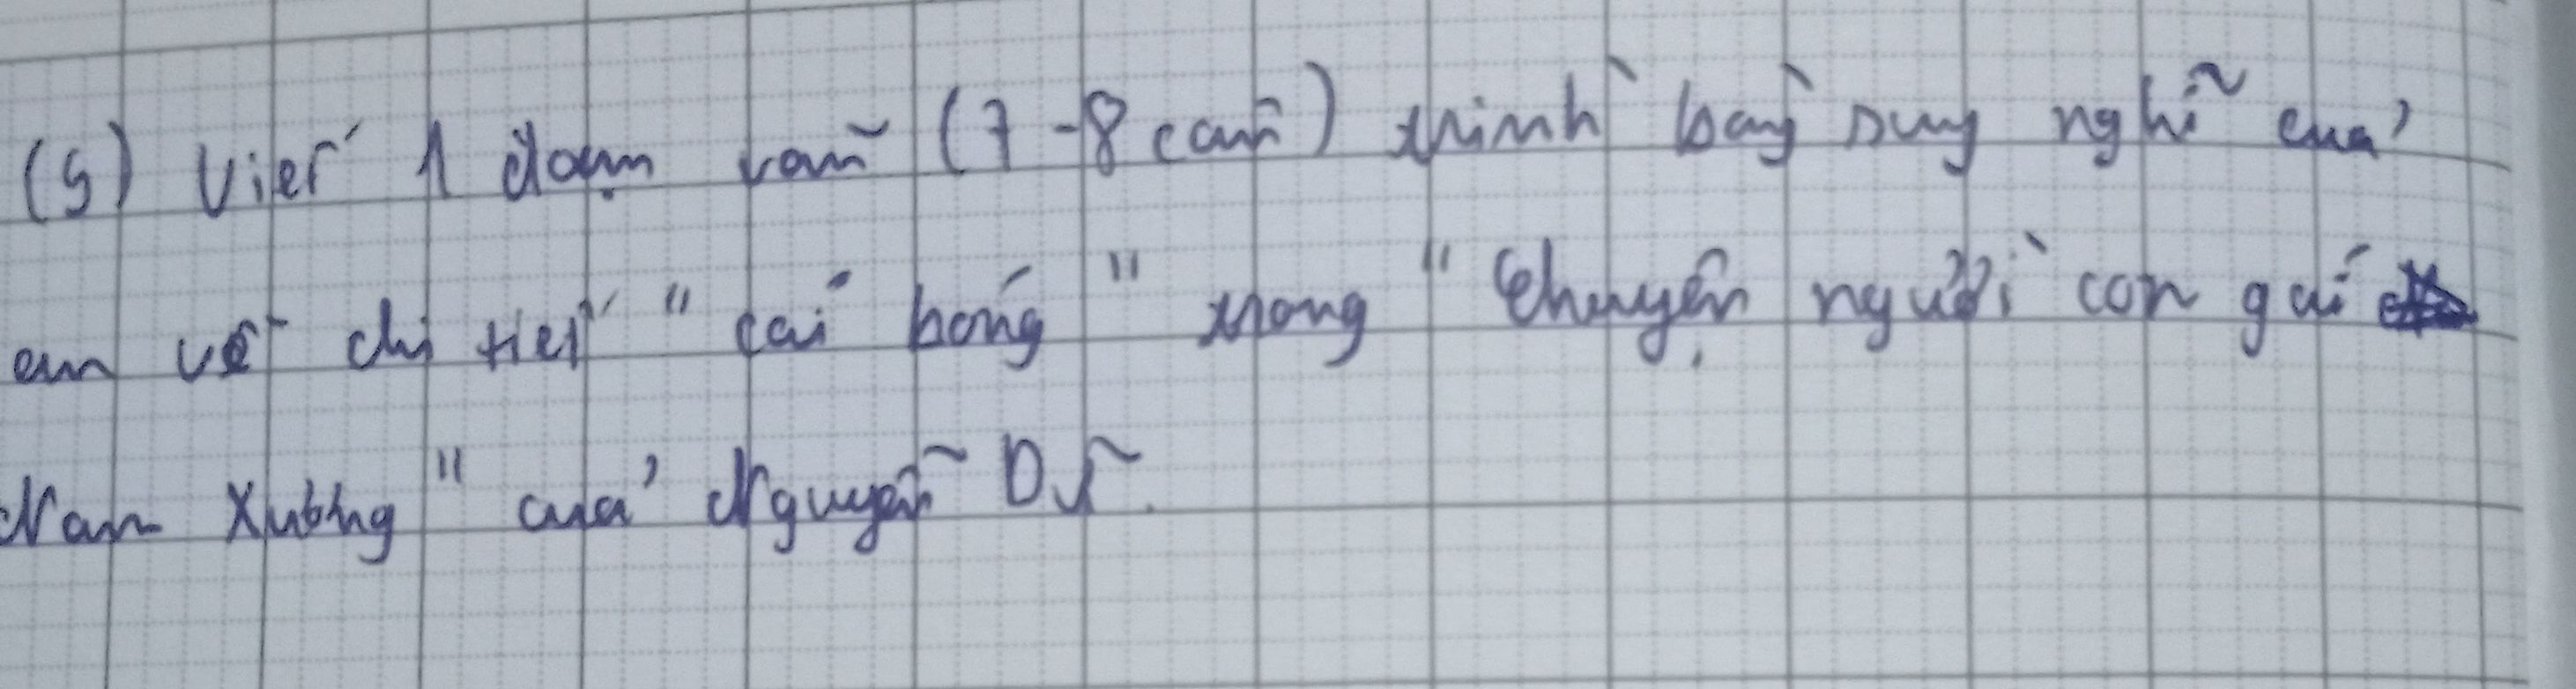 (5) Viết 1 đoạn văn (7-8 câu) trình bày suy nghĩ của
em về chi tiết "cái bóng" trong "Chuyện người con gái
Nam Xương" của Nguyễn Dữ.